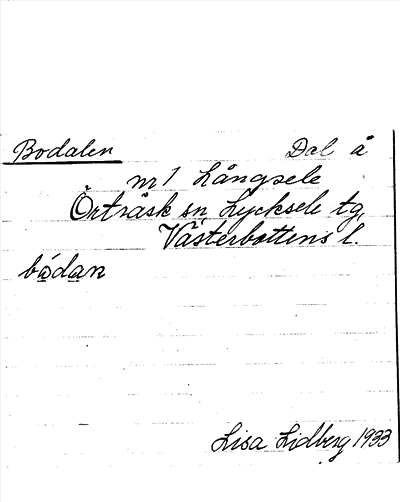 Bodalen Dal å
nr 1 Långsele
Örträsk sn, Lycksele tg,
Västerbottens l.
bódan
Lisa Lidberg 1933